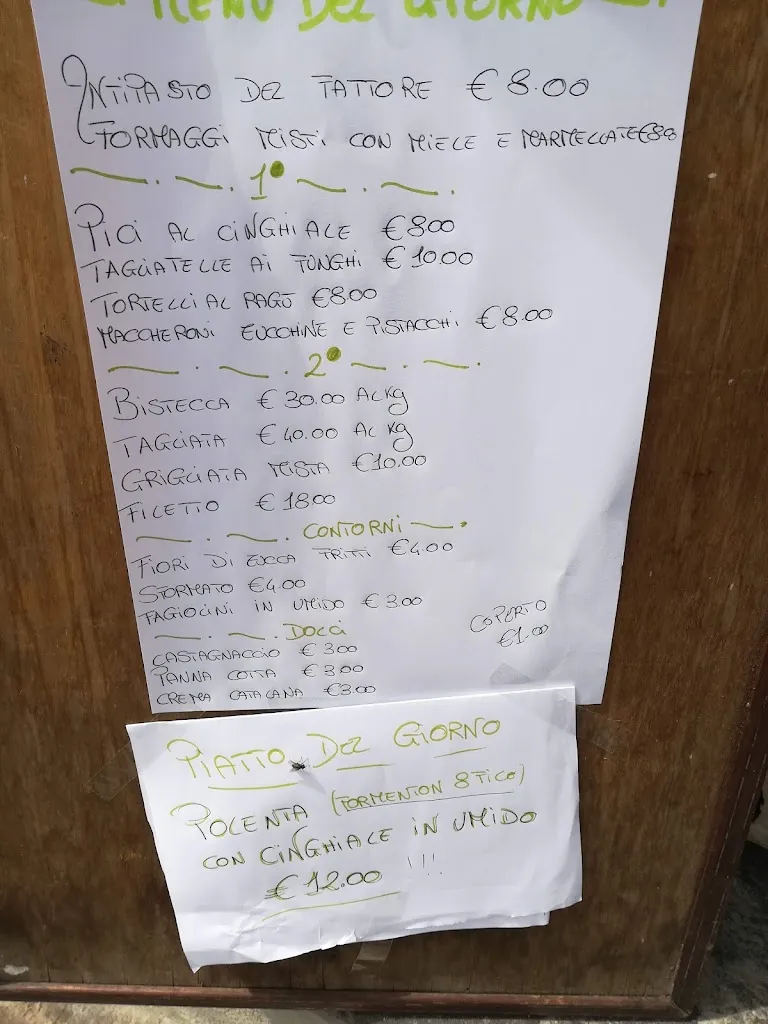 MENU DEL GIORNO
ANTIPASTO DEL FATTORE € 8.00
FORMAGGI MISTI CON MIELE E MARMELLATE €8.00
1°
PICI AL CINGHIALE €8.00
TAGLIATELLE AI FUNGHI €10.00
TORTELLI AL RAGÙ €8.00
MACCHERONI ZUCCHINE E PISTACCHI €8.00
2°
BISTECCA €30.00 AL KG
TAGLIATA €40.00 AL KG
GRIGLIATA MISTA €10.00
FILETTO €18.00
CONTORNI
FIORI DI ZUCCA FRITTI €4.00
SFORMATO €4.00
FAGIOLINI IN UMIDO €3.00
COPERTO
€1.00
DOLCI
CASTAGNACCIO €3.00
PANNA COTTA €3.00
CREMA CATALANA €3.00
PIATTO DEL GIORNO
POLENTA (FORMENTON 8 FILE)
CON CINGHIALE IN UMIDO
€12.00 !!!